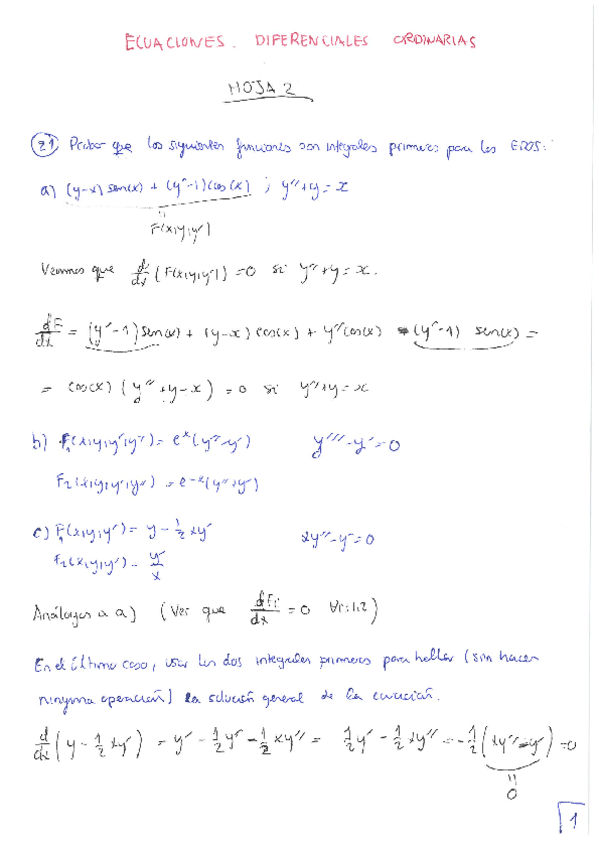 ECUACIONES DIFERENCIALES ORDINARIAS
HOJA 2
21 Probar que las siguientes funciones son integrales primeras para las EDOS:
a) (y-x) sen(x) + (y'-1) cos(x) ; y''+y=x
F(x,y,y')
Veamos que d/dx (F(x,y,y')) = 0 si y''+y=x.
dF/dx = (y'-1) sen(x) + (y-x) cos(x) + y'' cos(x) - (y'-1) sen(x) =
= cos(x) (y''+y-x) = 0 si y''+y=x
b) F1(x,y,y',y'') = e^x (y''-y') y'''-y'=0
F2(x,y,y',y'') = e^-x (y''+y')
c) F1(x,y,y') = y - 1/2 xy' xy''-y'=0
F2(x,y,y') = y'/x
Análogas a a) (Ver que dFi/dx = 0 ∀i:1,2)
En el último caso, usar las dos integrales primeras para hallar (sin hacer
ninguna operación) la solución general de la ecuación.
d/dx (y - 1/2 xy') = y' - 1/2 y' - 1/2 xy'' = 1/2 y' - 1/2 xy'' = -1/2 (xy''-y') = 0
0
1